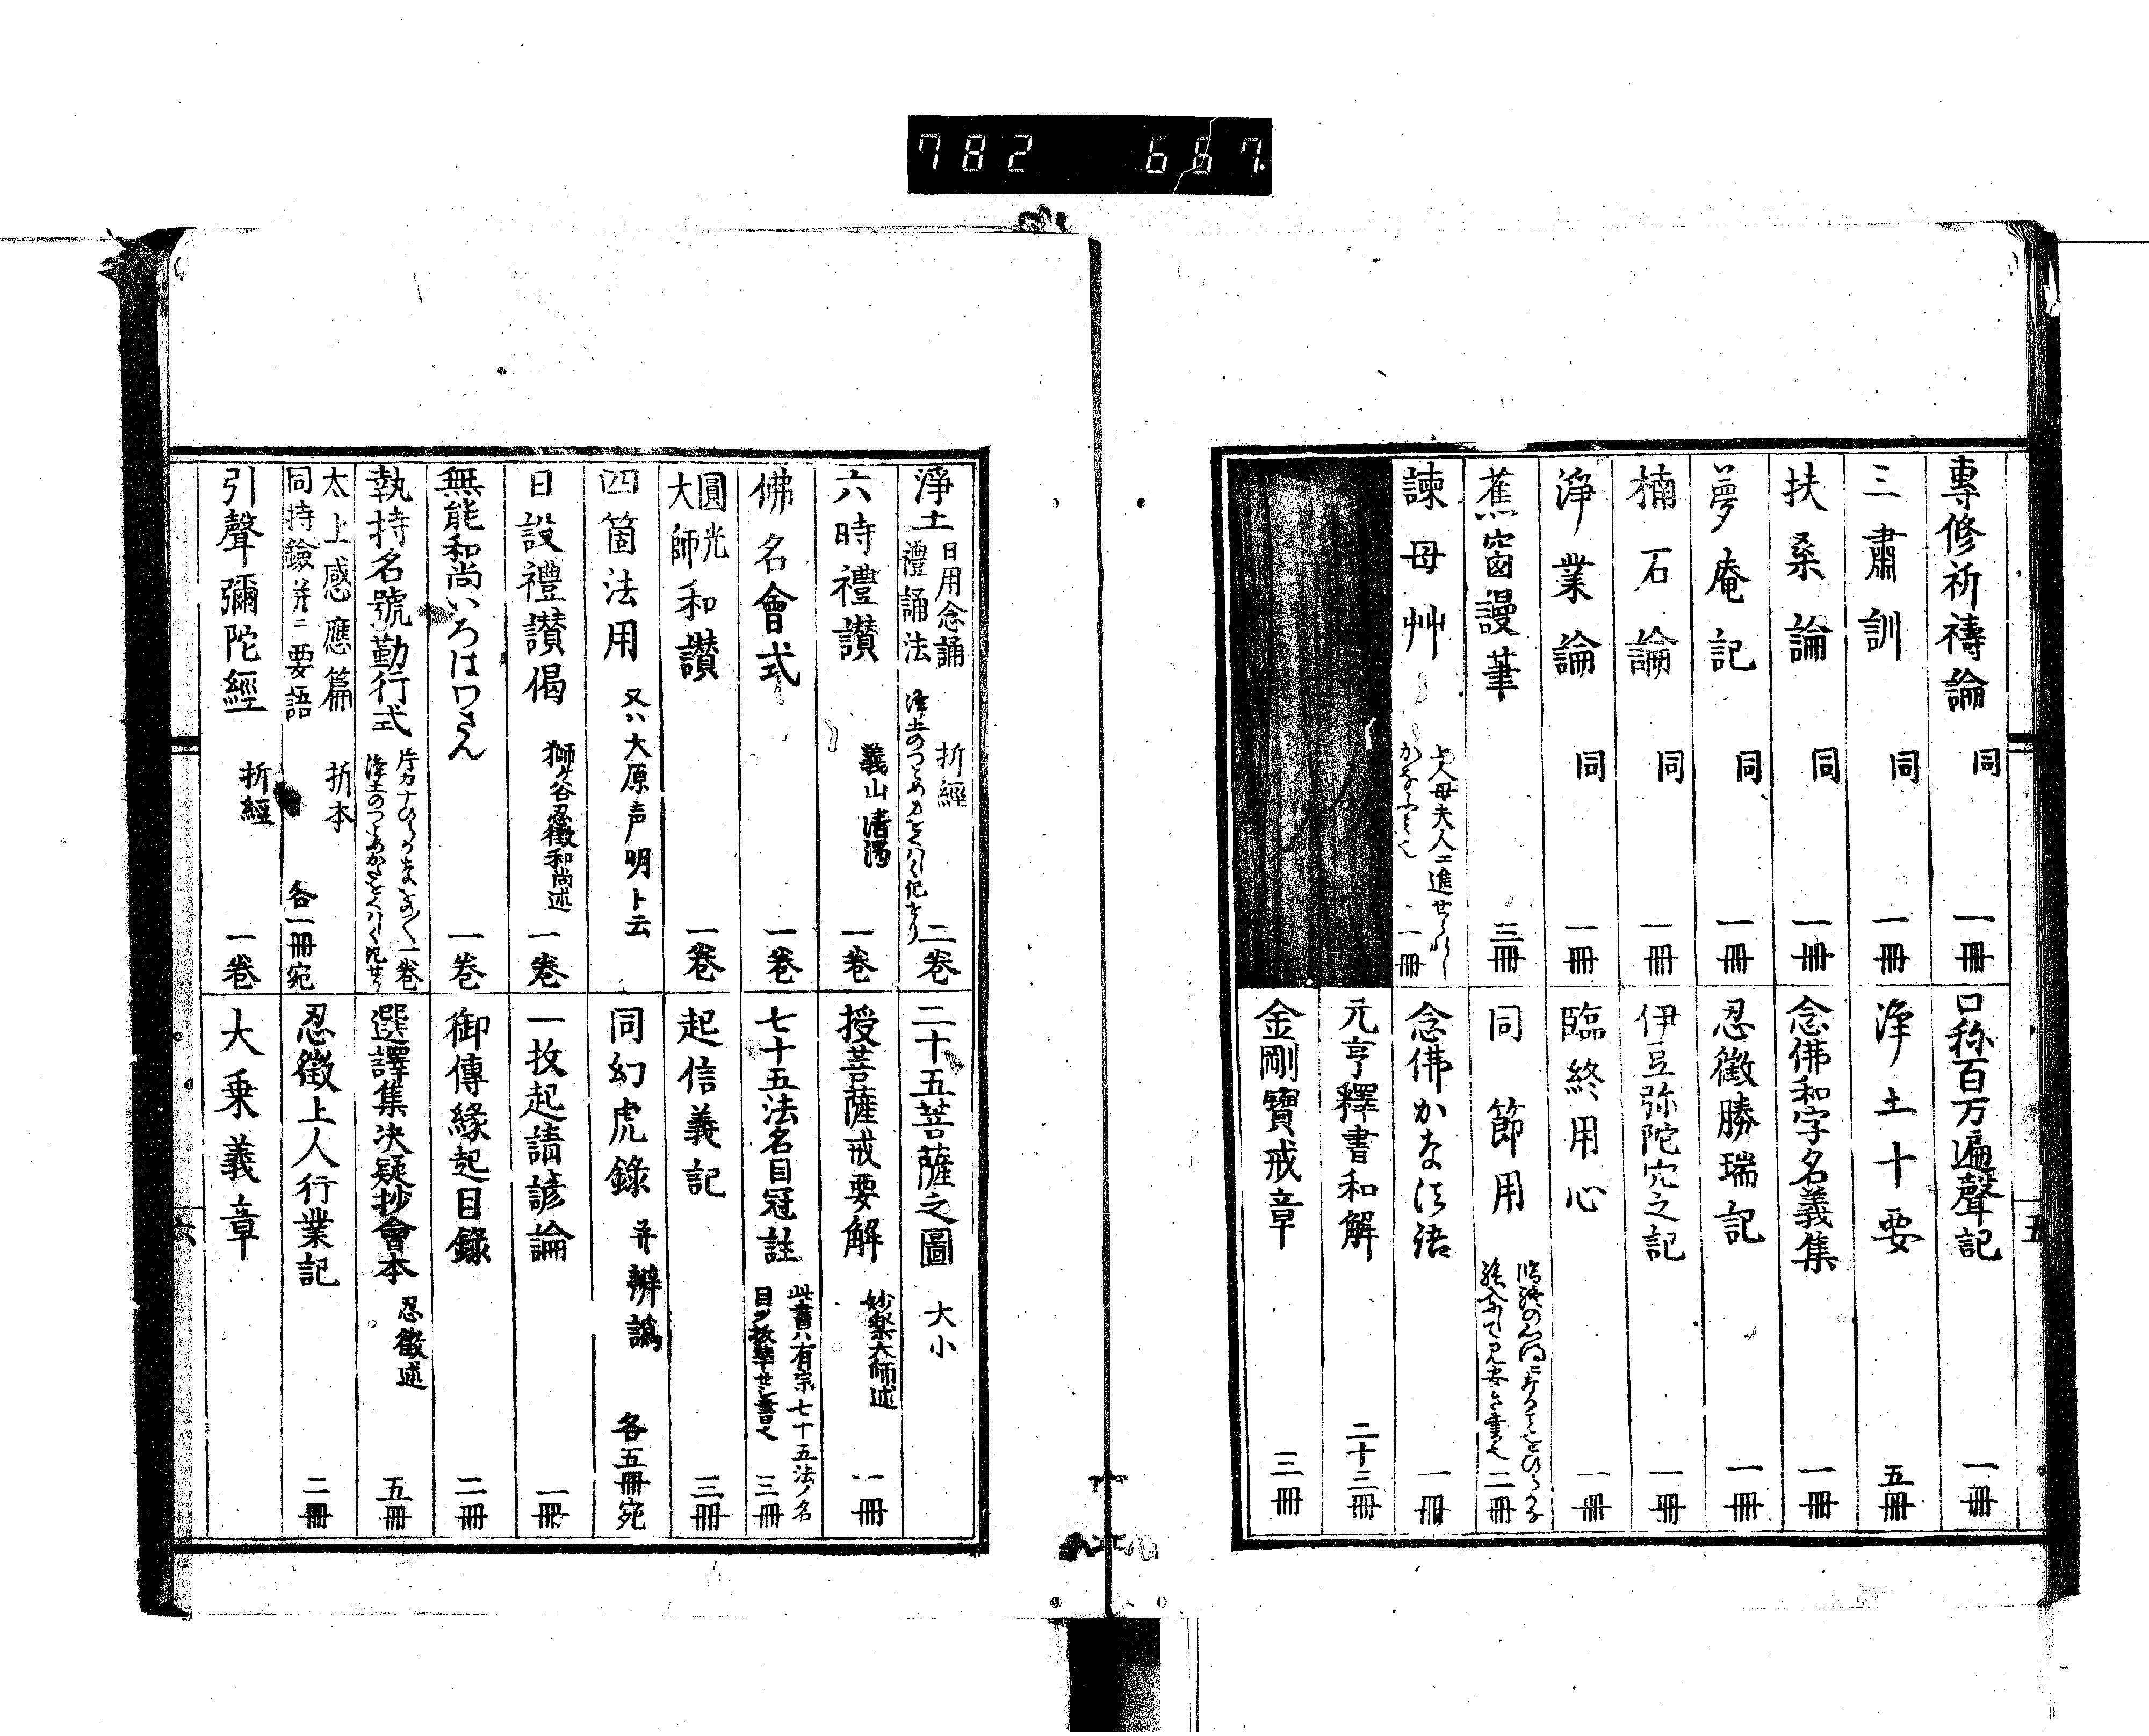 782 667
專修祈禱論 同 一冊
三肅訓 同 一冊
扶桑論 同 一冊
夢庵記 同 一冊
楠石論 同 一冊
淨業論 同 一冊
蕉窗謾筆 三冊
諫母艸 上人母夫人エ進せられし
一冊
口称百万遍聲記 一冊
淨土十要 五冊
念佛和字名義集 一冊
忍徴勝瑞記 一冊
伊豆弥陀穴之記 一冊
臨終用心 一冊
同節用 二冊
念佛かな法語 一冊
元亨釋書和解 二十三冊
金剛寶戒章 三冊
五
淨土 日用念誦 折經
禮誦法 二卷
六時禮讃 義山 一卷
佛名會式 一卷
圓光大師和讃 一卷
四箇法用 又ハ大原声明ト云
日設禮讃偈 獅ケ谷忍徴和尚述 一卷
無能和尚いろはワさん 一卷
執持名號勤行式 一卷
太上感應篇 折本
同持鐱并ニ要語 各一冊宛
引聲彌陀經 折經 一卷
二十五菩薩之圖 大小
授菩薩戒要解 妙樂大師述 一冊
七十五法名目冠註 此書ハ有宗七十五法ノ名
目ヲ抜萃セシ書也 三冊
起信義記 三冊
同幻虎錄 并辨譌 各五冊宛
一枚起請諺論 一冊
御傳緣起目錄 二冊
選譯集决疑抄會本 忍徴述 五冊
忍徴上人行業記 二冊
大乗義章
六